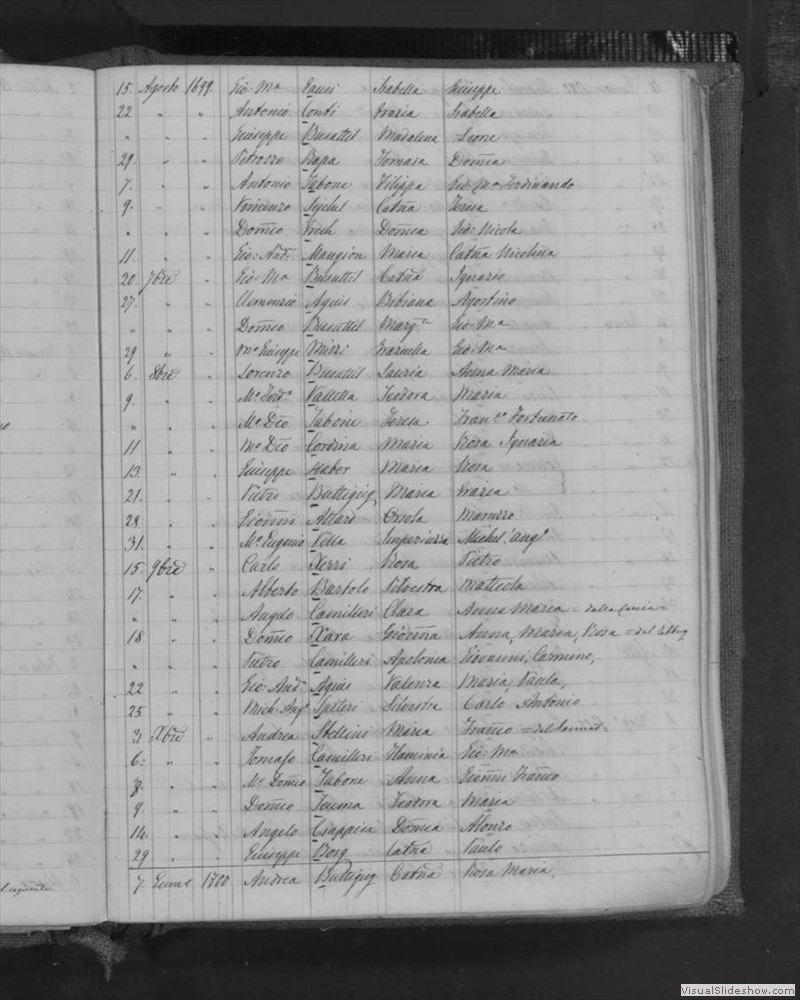 15. Agosto 1699 Gio: Ma Isabella Giuseppe
22 " " Antonio Conti Isabella
" " " Giuseppe Busuttil Madalena Leone
29 " " Tomasa Domca
7. " " Antonio Tabone Filippa Gio: Ma Ferdinando
9. " " Vincenzo Catña Teresa
" " " Domco Grech Domca Gio: Nicola
11. " " Gio: And. Mangion Maria Catña Nicolina
20. 7bre " Gio: Ma Busuttil Catña Ignazio
27. " " Clemenzio Agius Bibiana Agostino
" " " Domco Busuttil Marg.ta Gio: Ma
29 " " Mo Giuseppe Mizzi Graziella Gio: Ma
6. 8bre " Lorenzo Busuttil Lauria Anna Maria
9. " " Mo Ferd.o Valletta Teodora Maria
" " " Mo Dco Tabone Teresa Fran.co Fortunato
11 " " Mo Dco Cordina Maria Rosa Ignazia
13. " " Giuseppe Maria Rosa
21. " " Pietro Buttigieg Maria Grazia
28. " " Gioanni Attard Orsola
31. " " Mo Eugenio Vella Imperiuzza Michel'Ang.o
15. 9bre " Carlo Xerri Rosa Pietro
17. " " Alberto Bartolo Silvestra Matteola
" " " Angelo Camilleri Clara Anna Maria =
18 " " Domco Xara Gioanna Anna, Maria, Rosa =
" " " Pietro Camilleri Apolonia Giovanni, Carmine,
22 " " Gio: And.a Agius Valenza Maria, Paula,
25. " " Mich: Ang.o Spiteri Silvestra Carlo Antonio
3. Xbre " Andrea Stellini Maria Franco =
6: " " Tomaso Camilleri Flaminia Gio: Ma
8. " " Mo Domco Tabone Anna Gioanni Franco
9. " " Domco Teuma Teodora Maria
14. " " Angelo Ciappina Domca Alonzo
29 " " Giuseppe Borg Catña Paulo
7. Genno 1700 Andrea Buttigieg Catña Rosa Maria,
VisualSlideshow.com